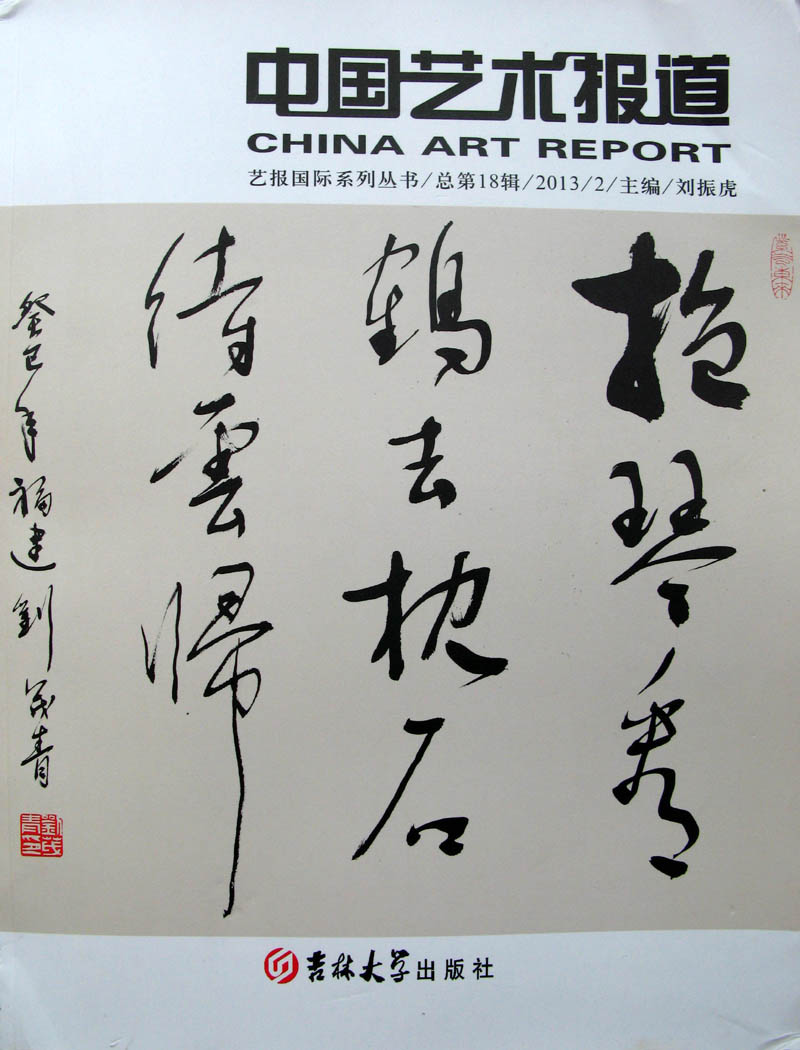 中国艺术报道
CHINA ART REPORT
艺报国际系列丛书/总第18辑/2013/2/主编/刘振虎
抱琴看
鶴去枕石
待雲歸
癸巳年福建劉茂青
劉茂青印
吉林大学出版社